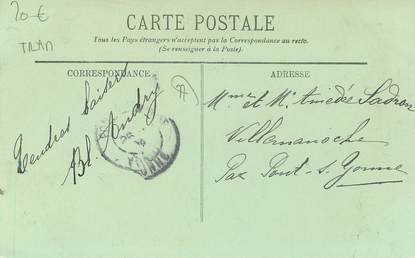 20 €
TRAM
CARTE POSTALE
Tous les Pays étrangers n'acceptent pas la Correspondance au recto.
(Se renseigner à la Poste).
CORRESPONDANCE
Tendres baisers
Bl. Andry
ADRESSE
Mme et Mr Amédé Sadron
Villemanoche
Par Pont-s-Yonne